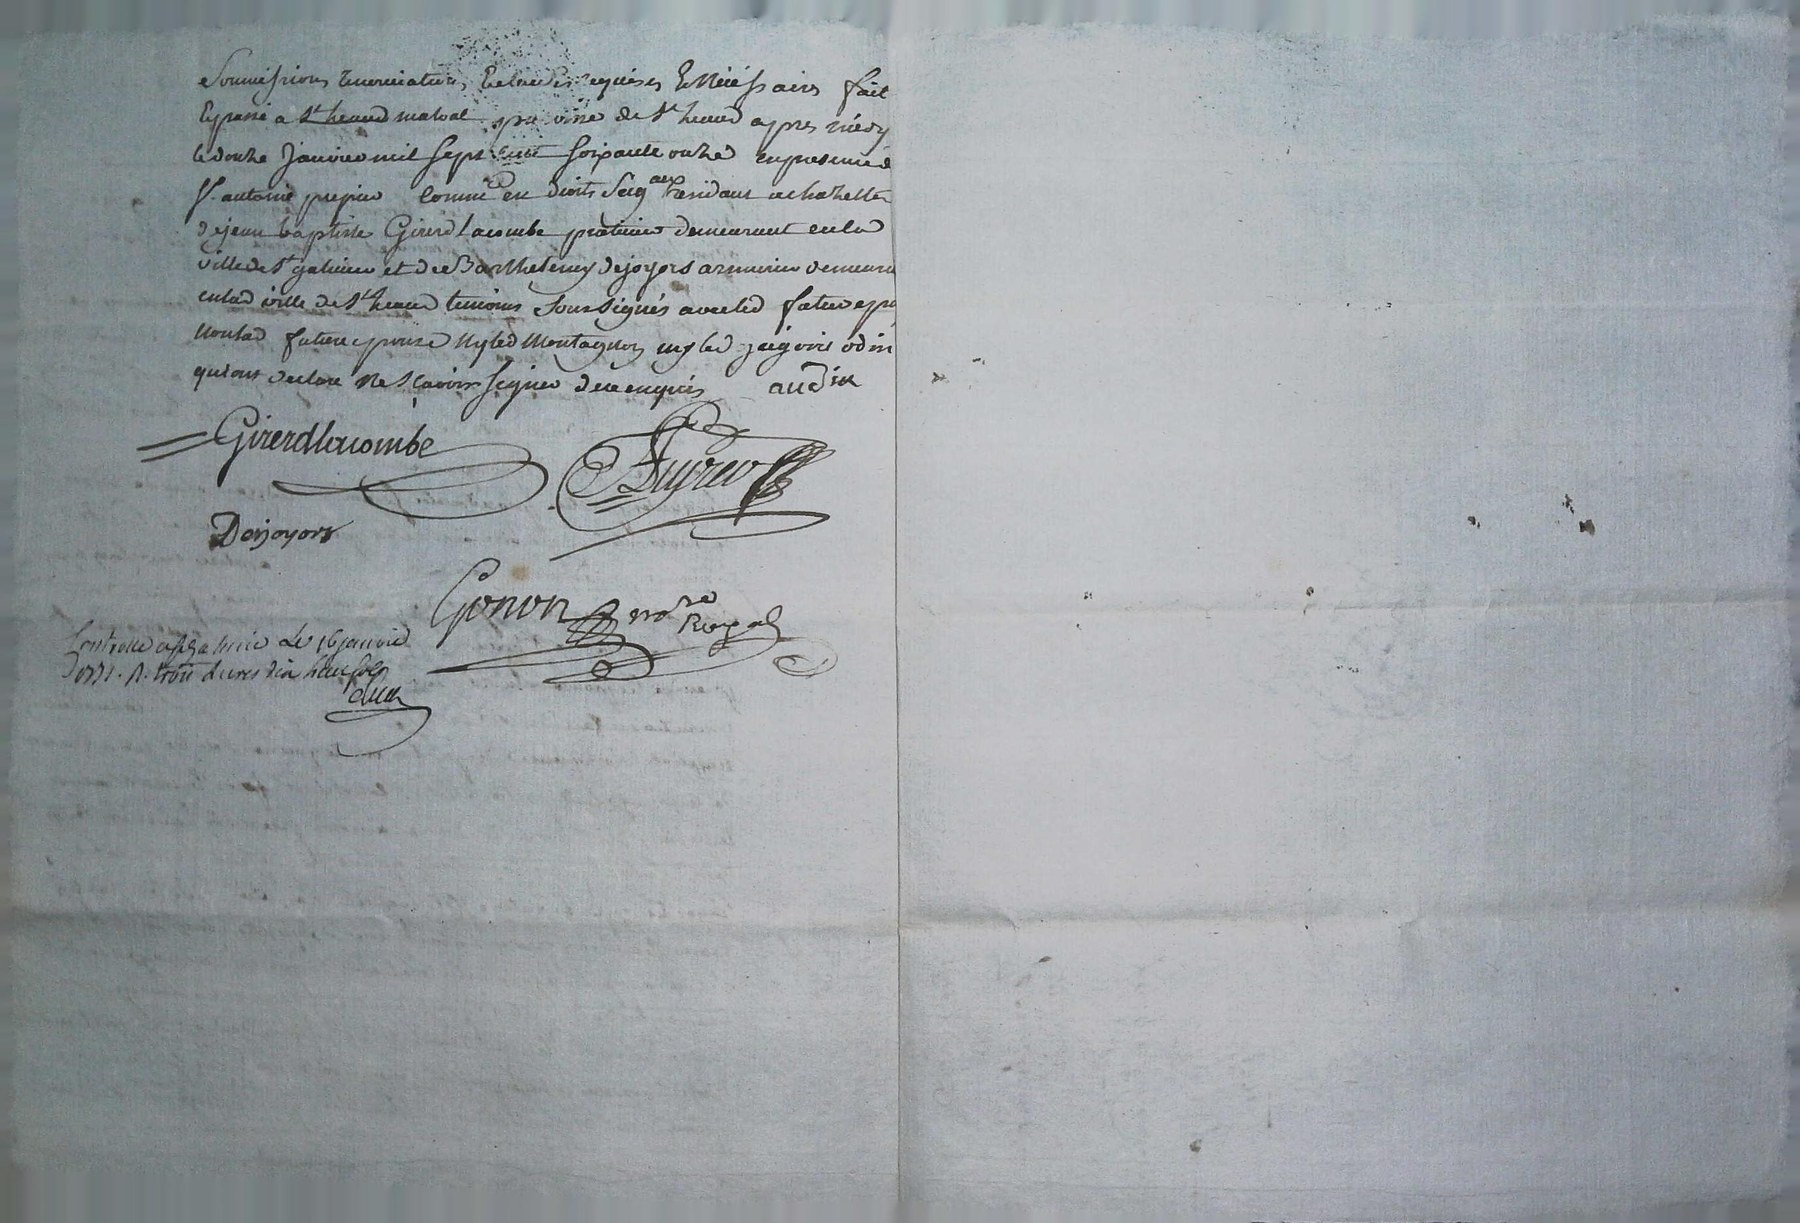 Soumissions renonciations & clauses requises & Nécéssaires fait
& passé a St heand maison presviere de St heand apres midy
le douze Janvier mil sept cent soixante onze en presence de
Sr. antoine commis en droits residant a chazelles
de jean baptiste Girerd Lacombe praticien demeurant en la
ville de St galmier et de Barthelemy dejoyors armurier demeurant
en lad ville de St heand temoins soussignés avec led futur epoux
non lad future epouse Ny led Montagnon ny led gregoire odin
qui ont declaré Ne Scavoir signer de ce enquis audin
Girerdlacombe
Dejoyors
Gonon nore Royal
Controllé a St galmier Le 16 janvier
1771. R. trois Livres dix huit sols